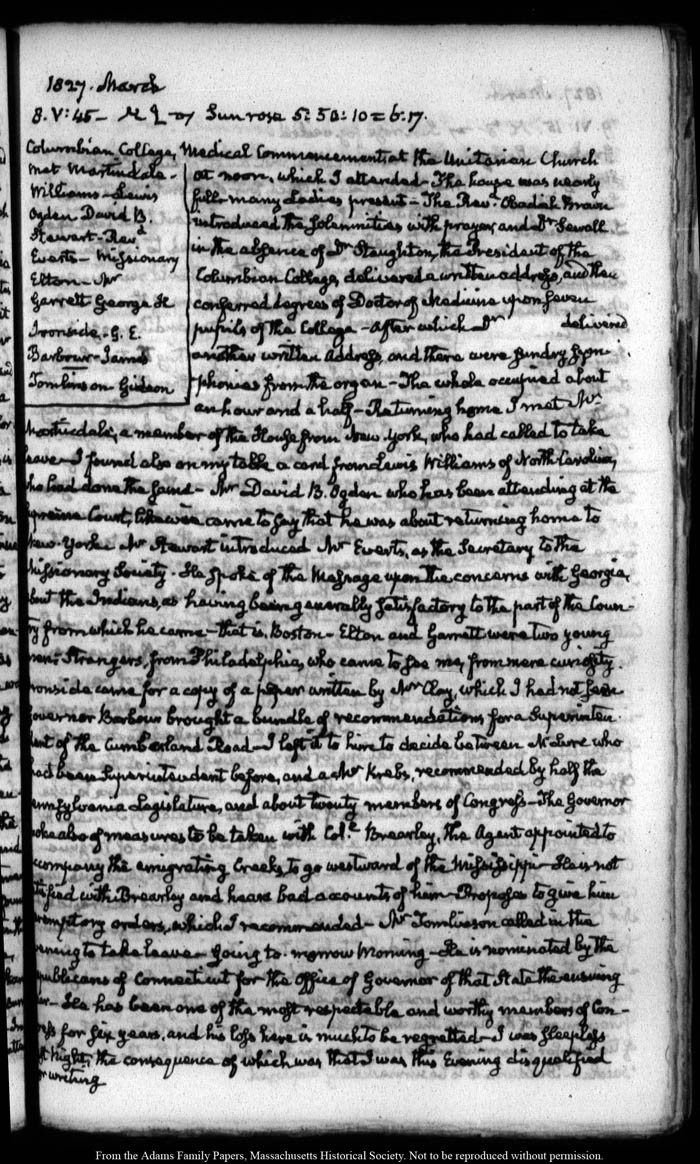 1827. March
8. V: 45— Sun rose 5: 50: 10 = 6: 17.
Columbian College, Medical Commencement at the Unitarian Church
met Martindale—
Williams—Lewis
Ogden David B.
Stewart—Revd
Evarts—Missionary
Elton—Mr
Garrett George
Ironside—G. E.
Barbour—James
Tomlinson Gideon
at noon, which I attended—The house was nearly
full—many Ladies present—The Revd. Obadiah Brown
introduced the solemnities with prayer, and Dr Sewall
in the absence of Dr Staughton, the President of the
Columbian College, delivered a written address, and then
conferred degrees of Doctor of Medicine upon seven
pupils of the College—After which Dr delivered
another written Address, and there were sundry sym-
phonies from the organ—The whole occupied about
an hour and a half—Returning home I met Mr
Martindale, a member of the House from New York, who had called to take
leave—I found also on my table a card from Lewis Williams of North Carolina,
who had done the same—Mr David B. Ogden who has been attending at the
Supreme Court, likewise came to say that he was about returning home to
New-York. Mr Stewart introduced Mr Evarts, as the Secretary to the
Missionary Society. He spoke of the Message upon the concerns with Georgia,
about the Indians, as having been generally satisfactory to the part of the Coun-
try from which he came—that is, Boston—Elton and Garrett were two young
men, Strangers, from Philadelphia, who came to see me, from mere curiosity.
Ironside came for a copy of a paper written by Mr Clay, which I had not seen
Governor Barbour brought a bundle of recommendations for a Superinten-
dent of the Cumberland Road—I left it to him to decide between McLure who
had been Superintendent before, and a Mr Krebs, recommended by half the
Pennsylvania Legislature, and about twenty members of Congress—The Governor
spoke also of measures to be taken with Coll. Brearley, the Agent appointed to
accompany the emigrating Creeks, to go westward of the Mississippi—He is not
satisfied with Brearley and hears bad accounts of him—Proposes to give him
peremptory orders, which I recommended—Mr Tomlinson called in the
evening to take leave—going to-morrow Morning—He is nominated by the
republicans of Connecticut for the Office of Governor of that State the ensuing
year—He has been one of the most respectable and worthy members of Con-
gress for six years, and his loss here is much to be regretted—I was sleepless
last Night, the consequence of which was that I was this Evening disqualified
for writing
From the Adams Family Papers, Massachusetts Historical Society. Not to be reproduced without permission.